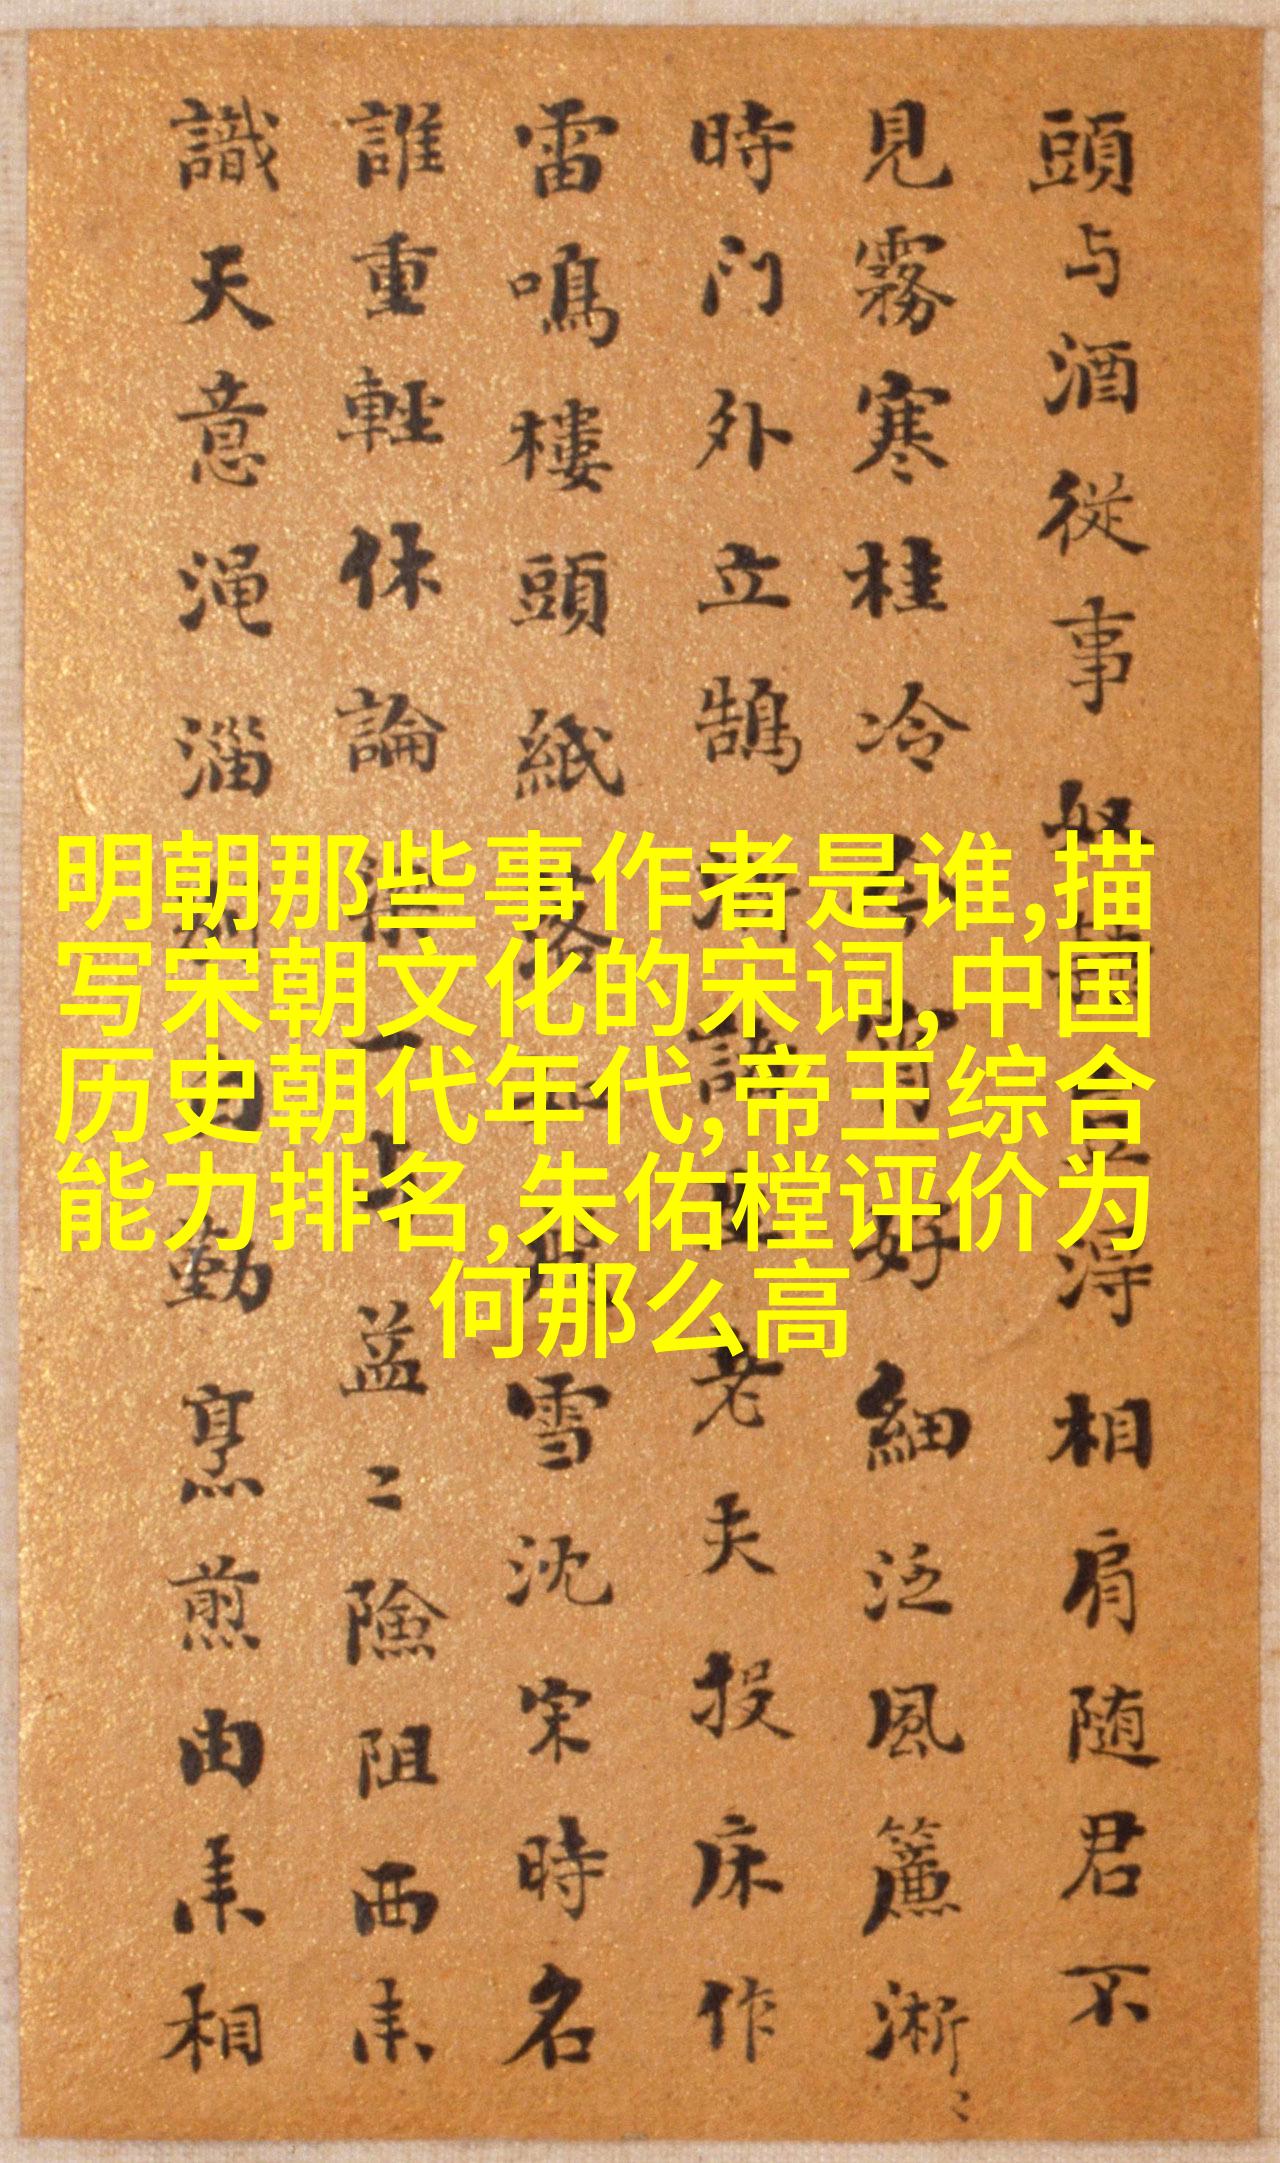 明朝那些事作者是谁,描
写宋朝文化的宋词,中国
历史朝代年代,帝王综合
能力排名,朱佑樘评价为
何那么高
頭与酒從事奴得相肩随君不
見霧寒桂冷好細泛風簾淅〻
時门外立鵠老夫投床作
雷鳴樓頭紙落雪沈宋時名
誰重輕休論上益〻險阻西来
識天意渑淄勤烹煎由来相